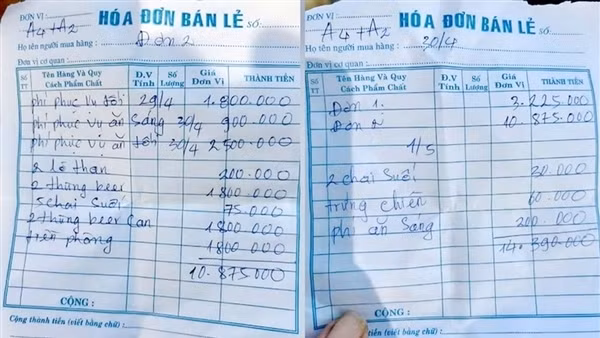 ĐƠN VỊ :
HÓA ĐƠN BÁN LẺ Số:
A4 + A2
Họ tên người mua hàng : Đơn 2
Đơn vị cơ quan :
Số TT
Tên Hàng Và Quy Cách Phẩm Chất
Đ.V Tính
Số Lượng
Giá Đơn Vị
THÀNH TIỀN
phí phục vụ tối 29/4 1.800.000
phí phục vụ ăn sáng 30/4 900.000
phí phục vụ ăn tối 30/4 2500.000
2 lò than 200.000
2 thùng beer 1800.000
5 chai suối 75.000
2 thùng beer Can 1800.000
tiền phòng 1800.000
10.875000
CỘNG :
Cộng thành tiền (viết bằng chữ) :
ĐƠN VỊ :
HÓA ĐƠN BÁN LẺ Số:
A4 + A2
Họ tên người mua hàng : 30/4
Đơn vị cơ quan :
Số TT
Tên Hàng Và Quy Cách Phẩm Chất
Đ.V Tính
Số Lượng
Giá Đơn Vị
THÀNH TIỀN
Đơn 1. 3.225.000
Đơn 2 10.875.000
1/5
2 chai suối 30.000
trứng chiên 60.000
phí ăn sáng 200.000
14.390.000
CỘNG :
Cộng thành tiền (viết bằng chữ) :